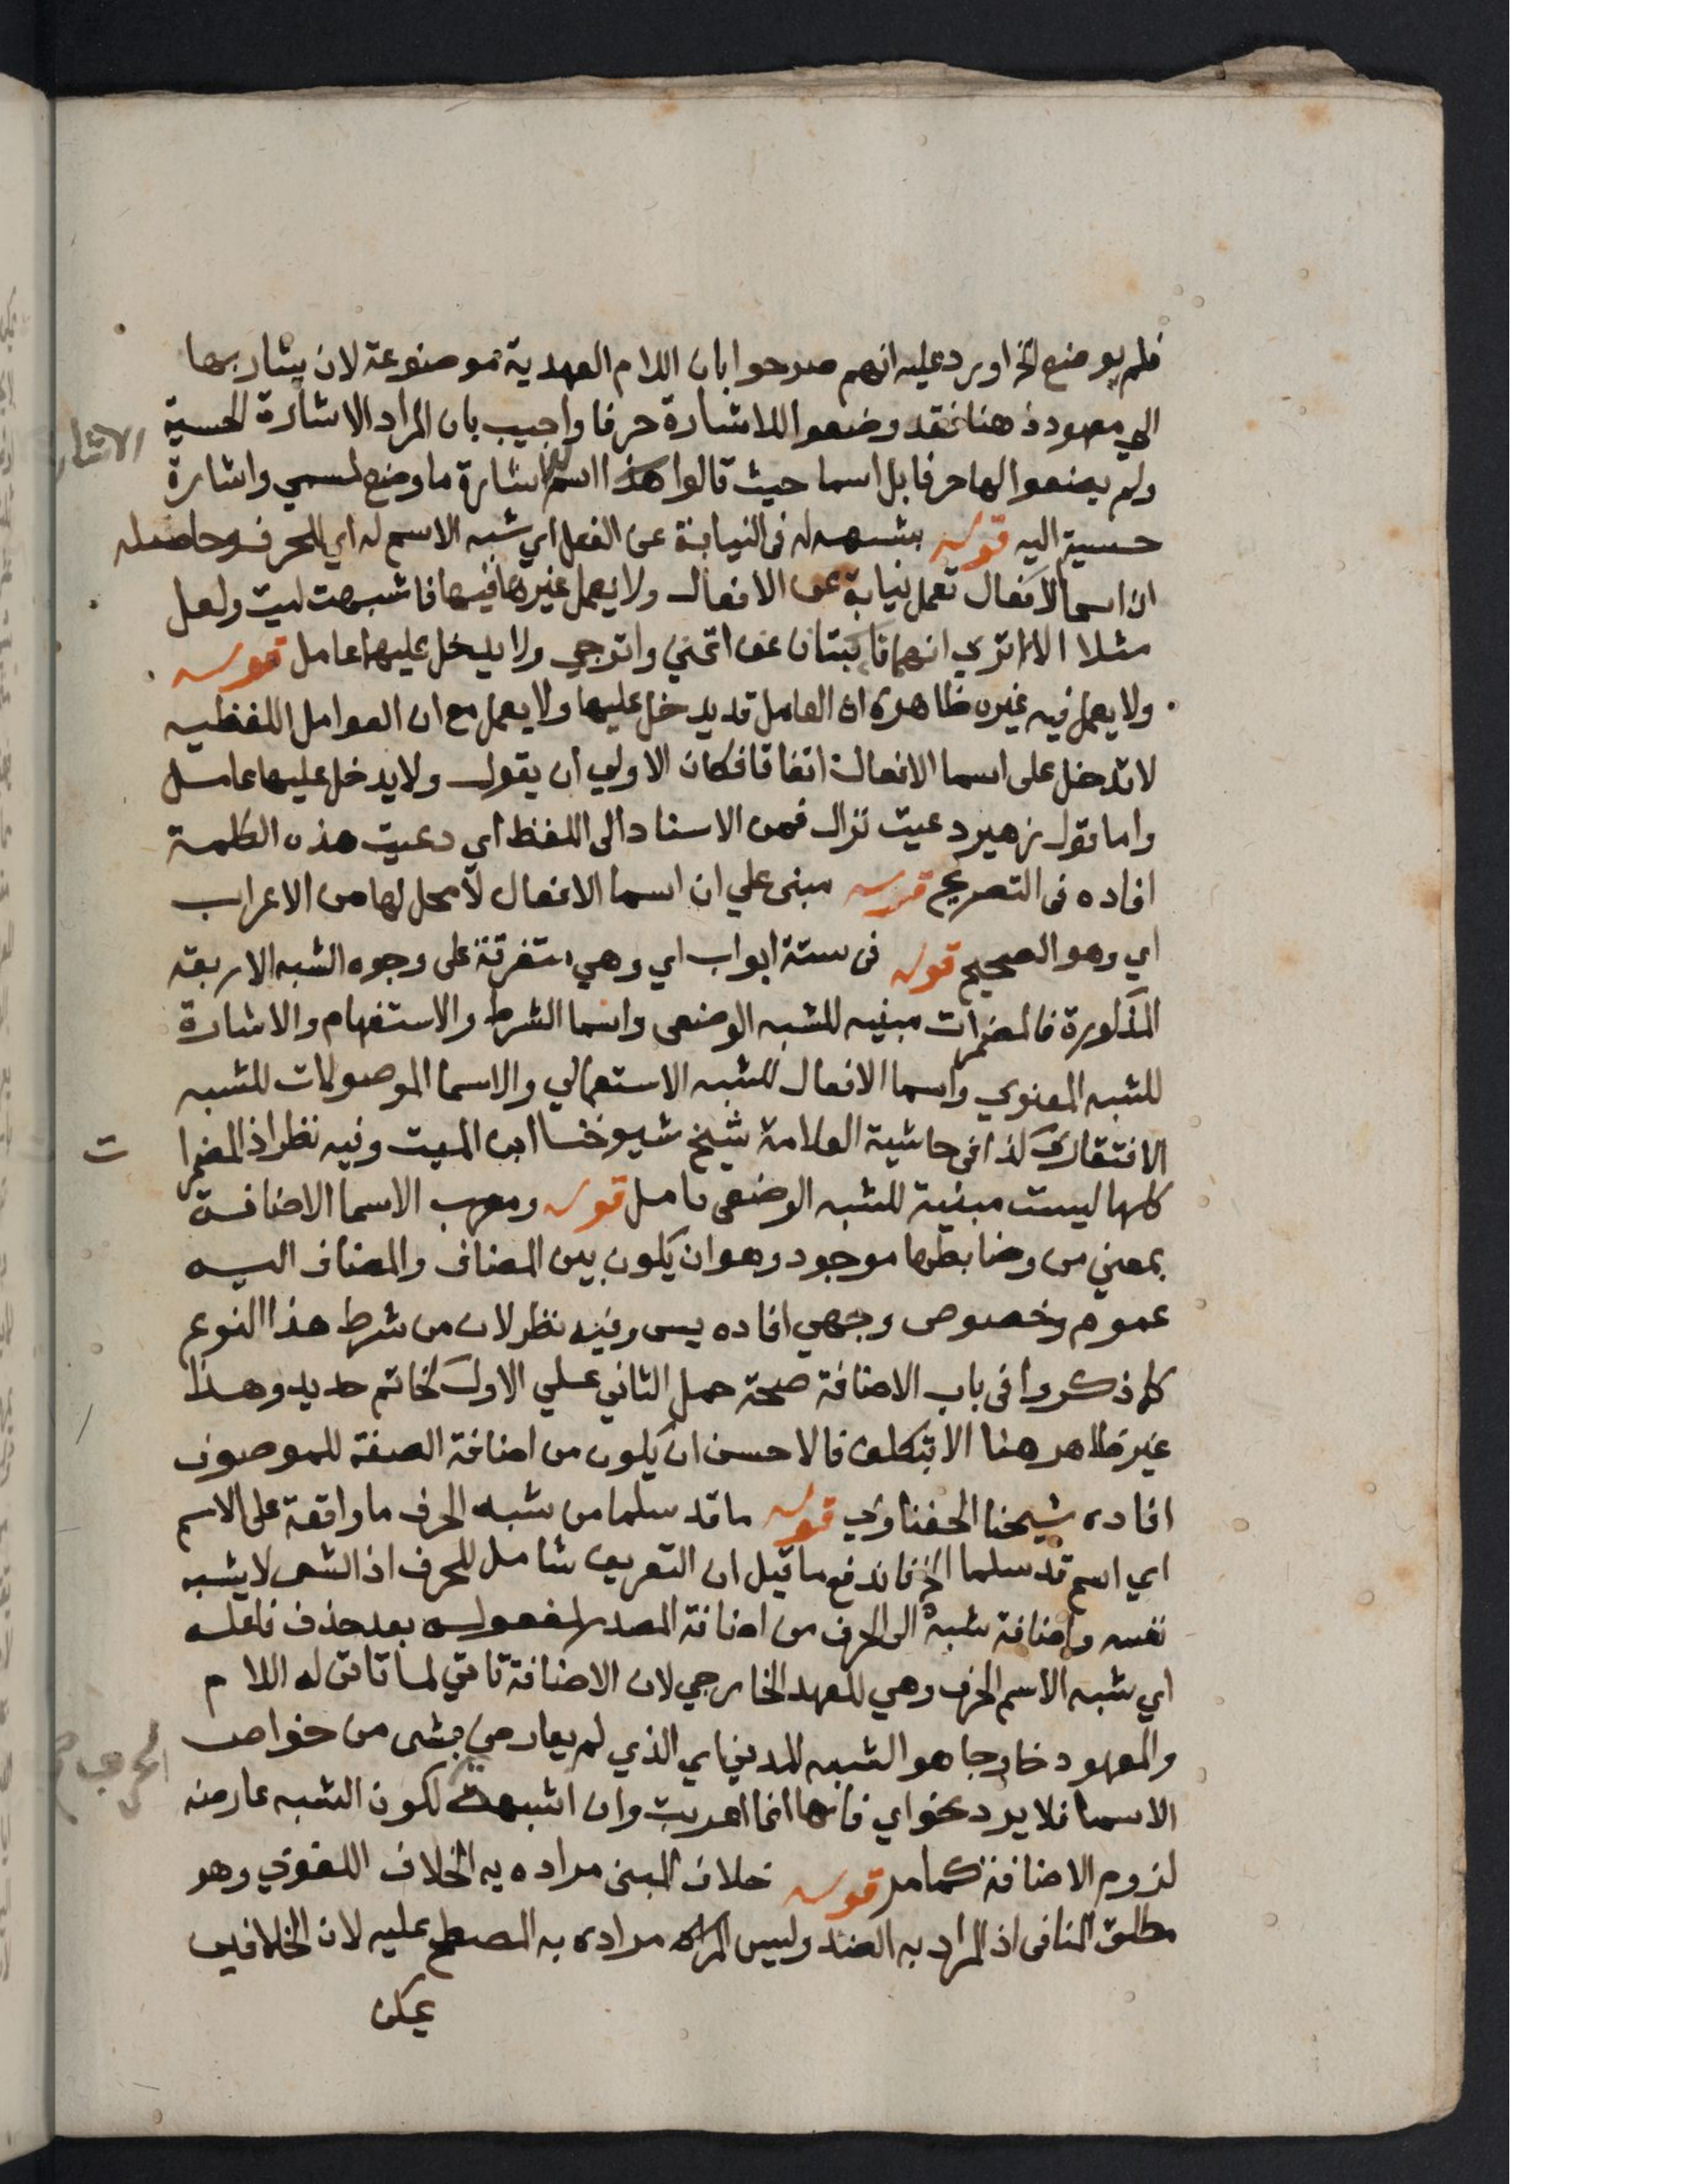 فلم يوضع الخ اورد عليه انهم صرحوا بان اللام العهدية موضوعة لان يشار بها
الي معهود ذهنا فقد وضعوا للاشارة حرفا واجيب بان المراد الاشارة الحسية
ولم يضعوا لها حرفا بل اسما حيث قالوا هذا اسم اشارة ما وضع لمسمي واشارة
الاشار
حسية اليه قوله بشبهه له فى النيابة عن الفعل اي شبه الاسم له اي للحرف وحاصله
ان اسما الافعال تعمل نيابة عن الافعال ولا يعمل غيرها فيها فاشبهت ليت ولعل
مثلا الا تري انهما نائبتان عن اتمني واترجي ولا يدخل عليها عامل قوله
ولا يعمل فيه غيره ظاهره ان العامل قد يدخل عليها ولا يعمل مع ان العوامل اللفظيه
لا تدخل على اسما الافعال اتفاقا فكان الاولي ان يقول ولا يدخل عليها عامل
واما قول زهير دعيت نزال فمن الاسناد الى اللفظ اي دعيت هذه الكلمة
افاده فى التصريح قوله مبنى علي ان اسما الافعال لا محل لها من الاعراب
اي وهو الصحيح قوله فى ستة ابواب اي وهي متفرقة على وجوه الشبه الاربعة
المذكورة فالمضمرات مبنيه للشبه الوضعى واسما الشرط والاستفهام والاشارة
للشبه المعنوي واسما الافعال للشبه الاستعمالي والاسما الموصولات للشبه
الافتقاري كذا فى حاشية العلامة شيخ شيوخنا ابن الميت وفيه نظر اذ المضمرا
ت
كلها ليست مبنية للشبه الوضعى تامل قوله ومعرب الاسما الاضافة
بمعني من وضابطها موجود وهو ان يكون بين المضاف والمضاف اليه
عموم وخصوص وجهي افاده يس وفيه نظر لان من شرط هذا النوع
كما ذكروا فى باب الاضافة صحة حمل الثاني علي الاول كخاتم حديد وهذا
غير ظاهر هنا الا بتكلف فالاحسن ان يكون من اضافة الصفة للموصوف
افاده شيخنا الحفناوي قوله ما قد سلما من شبه الحرف ما واقعة على الاسم
اي اسم قد سلما الخ فاندفع ما قيل ان التعريف شامل للحرف اذ الشى لا يشبه
نفسه واضافة شبه الى الحرف من اضافة المصدر لمفعوله بعد حذف فاعله
اي شبه الاسم الحرف وهي للعهد الخارجي لان الاضافة تاتي لما تاتى له اللام
والمعهود خارجا هو الشبه المدني اي الذي لم يعارض بشى من خواص
الاسما فلا يرد نحو اي فانها انما اعربت وان اشبهت لكون الشبه عارضه
الحرف صح
لزوم الاضافة كما مر قوله خلاف المبنى مراده به الخلاف اللغوي وهو
مطلق المنافى اذ المراد به الضد وليس مراده به المصطلح عليه لان الخلافين
يمكن